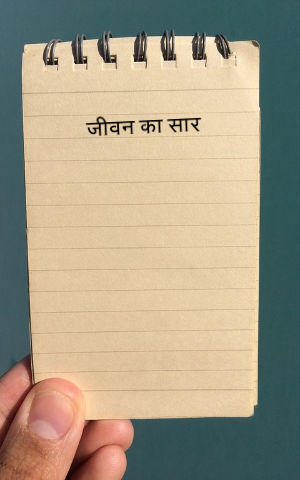 जीवन का सार